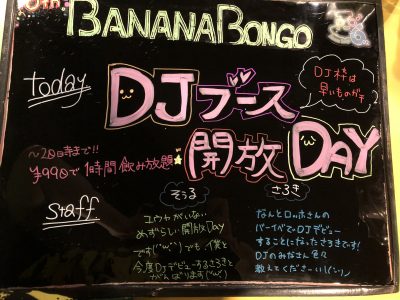 BANANABONGO
today
DJブース
開放DAY
DJ枠は
早いものガチ
~20時まで!!
¥990で1時間飲み放題
staff
そうる
ユウヤがいない
めずらしい開放Day
です('ω')でも、僕と
今度DJデビューするさろきと
がんばります('ω')
さろき
なんとロッホさんの
バーイベでDJデビュー
することになったさろきです!
DJのみなさん色々
教えてくださーい!